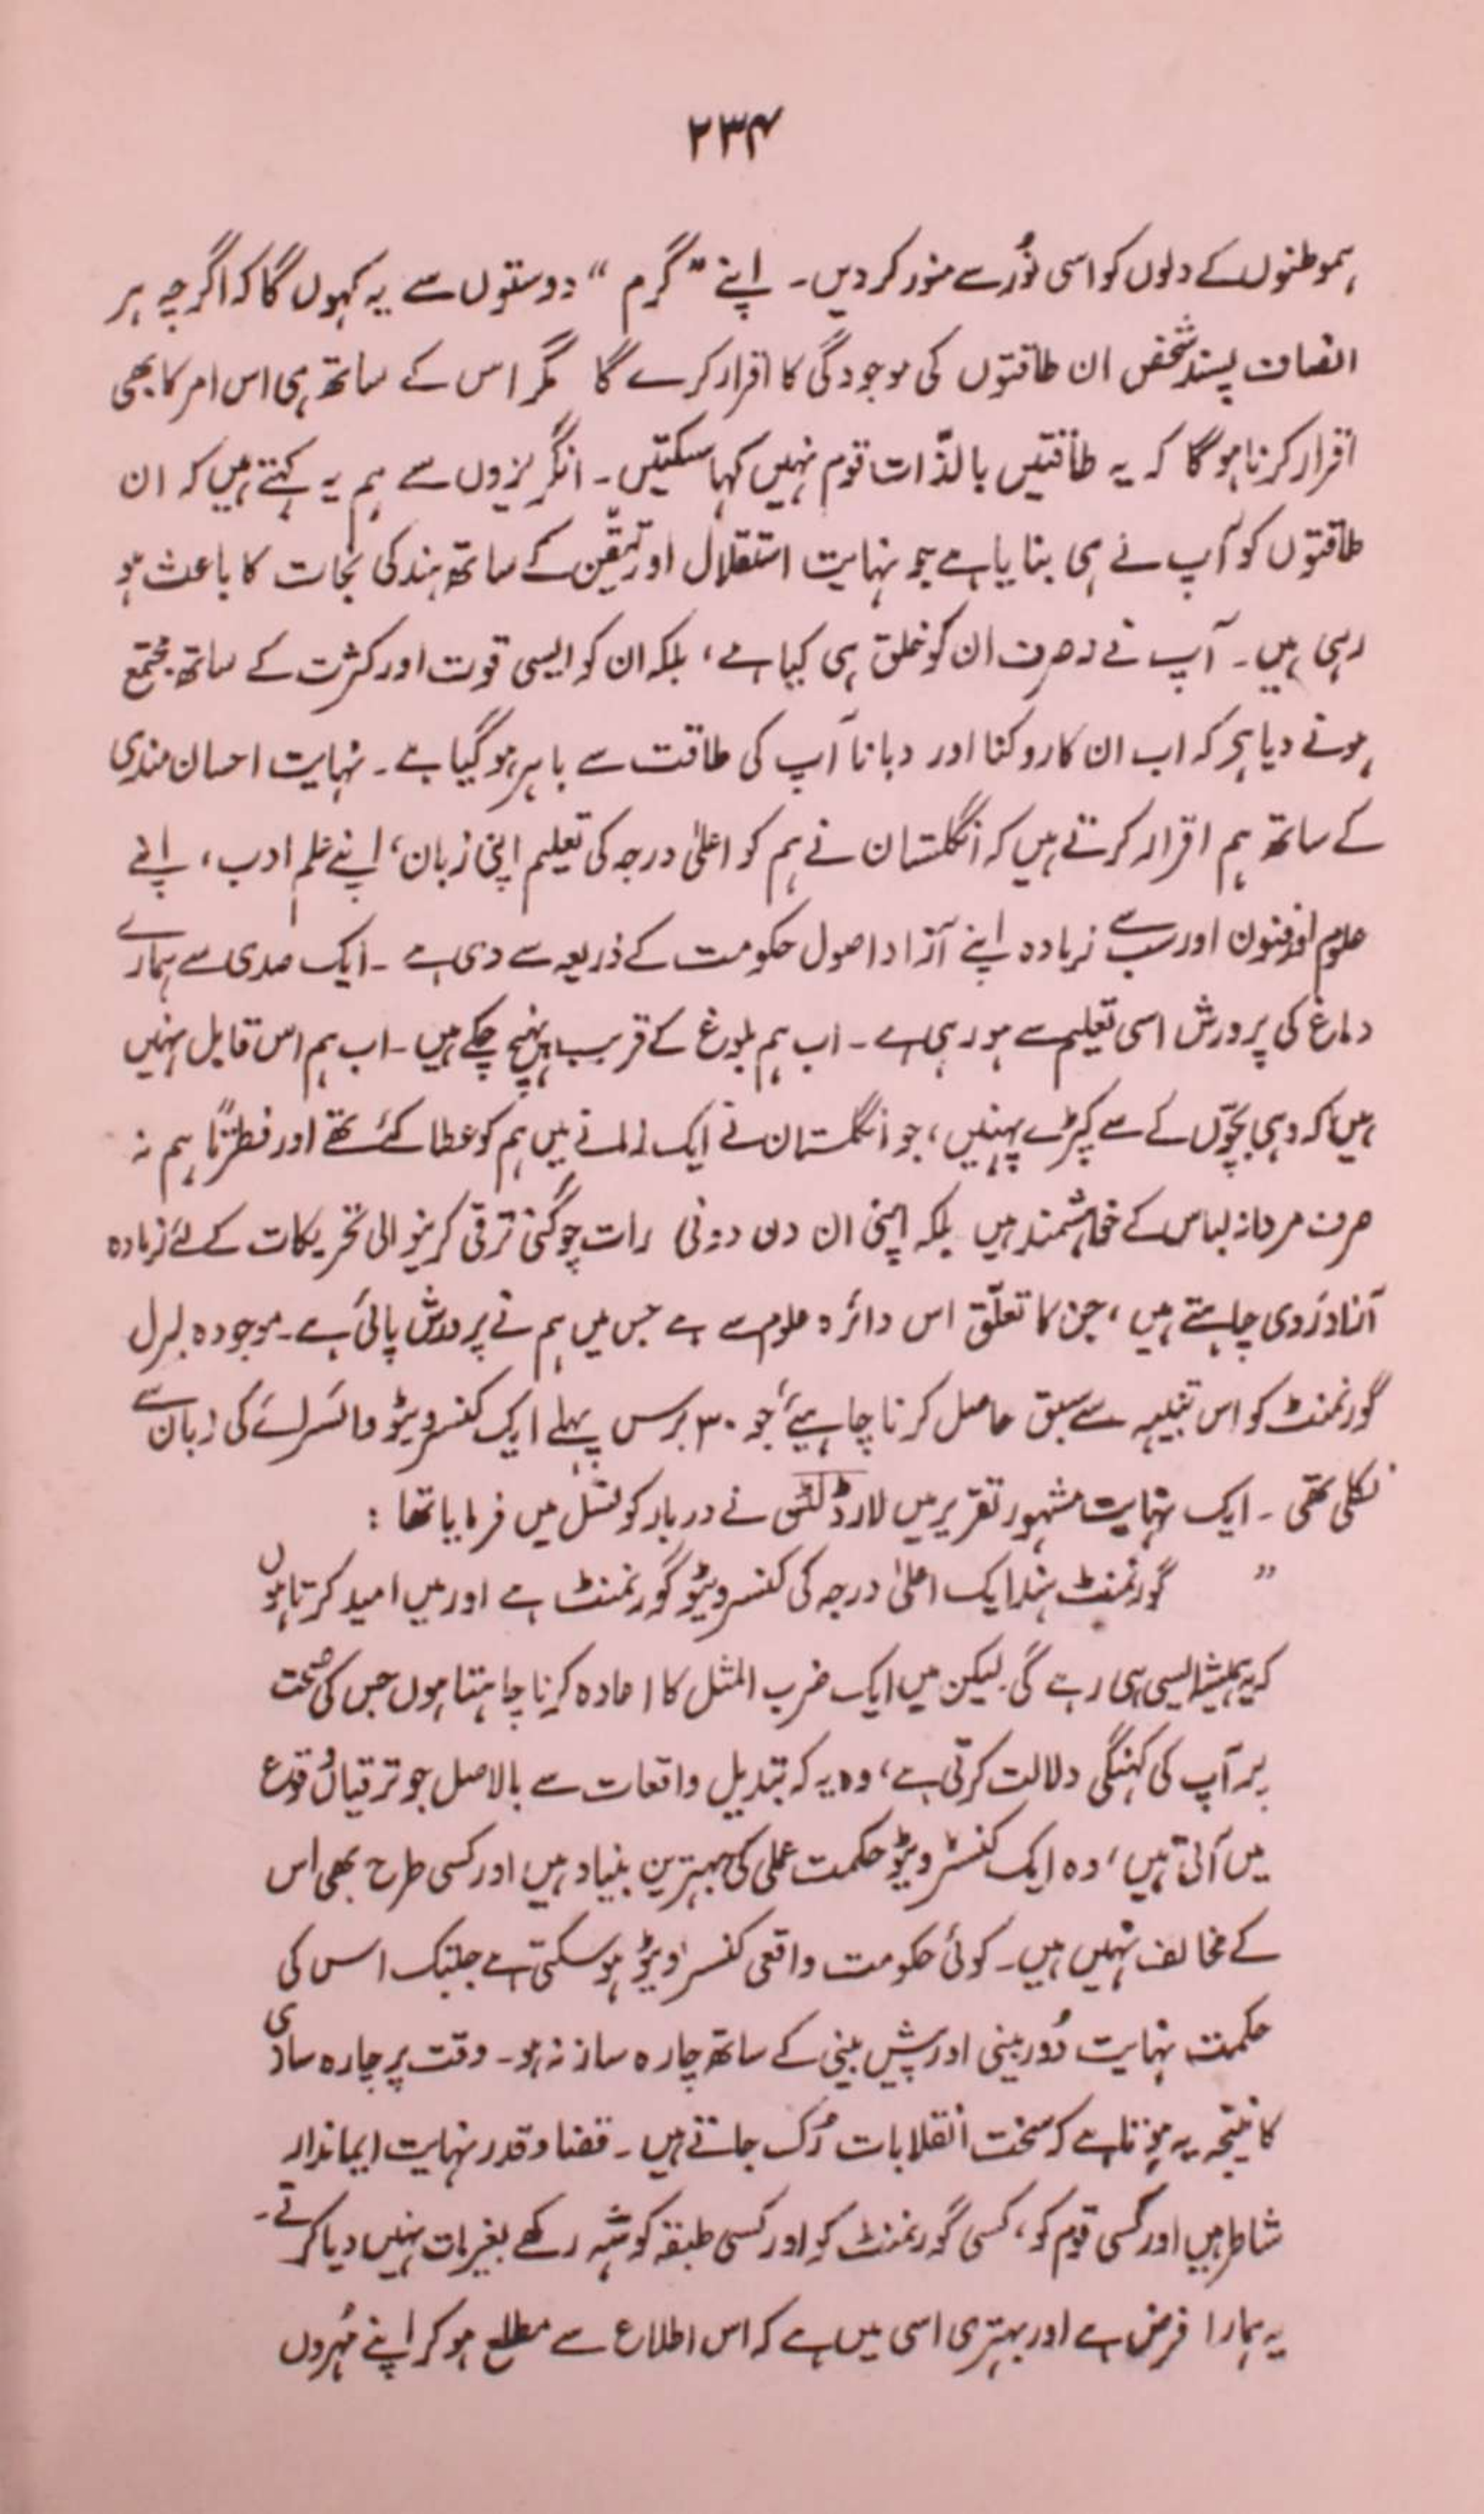 ۲۳۴
ہموطنوں کے دلوں کو اسی نُور سے منور کر دیں۔ اپنے "گرم" دوستوں سے یہ کہوں گا کہ اگرچہ ہر
انصاف پسند شخص ان طاقتوں کی موجودگی کا اقرار کرے گا مگر اس کے ساتھ ہی اس امر کا بھی
اقرار کرنا ہو گا کہ یہ طاقتیں بالذّات قوم نہیں کہا سکتیں۔ انگریزوں سے ہم یہ کہتے ہیں کہ ان
طاقتوں کو آپ نے ہی بنایا ہے جو نہایت استقلال اور تیقّن کے ساتھ ہند کی نجات کا باعث ہو
رہی ہیں۔ آپ نے نہ صرف ان کو خلق ہی کیا ہے، بلکہ ان کو ایسی قوت اور کثرت کے ساتھ مجتمع
ہونے دیا ہے کہ اب ان کا روکنا اور دبانا آپ کی طاقت سے باہر ہو گیا ہے۔ نہایت احسان مندی
کے ساتھ ہم اقرار کرتے ہیں کہ انگلستان نے ہم کو اعلیٰ درجہ کی تعلیم اپنی زبان، اپنے علم ادب، اپنے
علوم اور فنون اور سب سے زیادہ اپنے آزاد اصول حکومت کے ذریعہ سے دی ہے۔ ایک صدی سے ہمارے
دماغ کی پرورش اسی تعلیم سے ہو رہی ہے۔ اب ہم بلوغ کے قریب پہنچ چکے ہیں۔ اب ہم اس قابل نہیں
ہیں کہ وہی بچّوں کے سے کپڑے پہنیں، جو انگلستان نے ایک زمانے میں ہم کو عطا کئے تھے اور فطرتاً ہم نہ
صرف مردانہ لباس کے خواہشمند ہیں بلکہ اپنی ان دن دونی رات چوگنی ترقی کرنیوالی تحریکات کے لئے زیادہ
آزاد رَوی چاہتے ہیں، جن کا تعلّق اس دائرہ علوم سے ہے جس میں ہم نے پرورش پائی ہے۔ موجودہ لبرل
گورنمنٹ کو اس تنبیہہ سے سبق حاصل کرنا چاہیئے جو ۳۰ برس پہلے ایک کنسرویٹو وائسرائے کی زبان سے
نکلی تھی۔ ایک نہایت مشہور تقریر میں لارڈ لٹن نے دربار کونسل میں فرمایا تھا :
" گورنمنٹ ہند ایک اعلیٰ درجہ کی کنسرویٹو گورنمنٹ ہے اور میں امید کرتا ہوں
کہ یہ ہمیشہ ایسی ہی رہے گی لیکن میں ایک ضرب المثل کا اعادہ کرنا چاہتا ہوں جس کی صحت
پر آپ کی کہنگی دلالت کرتی ہے، وہ یہ کہ تبدیل واقعات سے بالاصل جو ترقیاں وقوع
میں آتی ہیں، وہ ایک کنسرویٹو حکمت عملی کی بہترین بنیاد ہیں اور کسی طرح بھی اس
کے مخالف نہیں ہیں۔ کوئی حکومت واقعی کنسرویٹو ہو سکتی ہے جبتک اس کی
حکمت نہایت دُوربینی اور پیش بینی کے ساتھ چارہ ساز نہ ہو۔ وقت پر چارہ سازی
کا نتیجہ یہ ہوتا ہے کہ سخت انقلابات رُک جاتے ہیں۔ قضا و قدر نہایت ایماندار
شاطر ہیں اور کسی قوم کو، کسی گورنمنٹ کو اور کسی طبقہ کو شہ رکھے بغیر مات نہیں دیا کرتے۔
یہ ہمارا فرض ہے اور بہتری اسی میں ہے کہ اس اطلاع سے مطلع ہو کر اپنے مُہروں